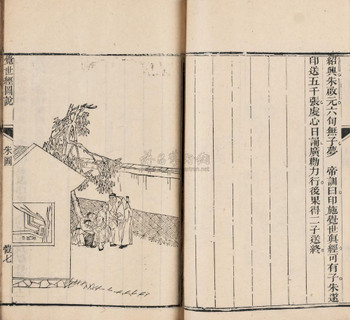 紹興朱啟元六旬無子夢　帝訓曰印施覺世真經可有子朱遂
印送五千張虔心日誦廣勸力行後果得二子送終
覺世經圖說
朱圖
七